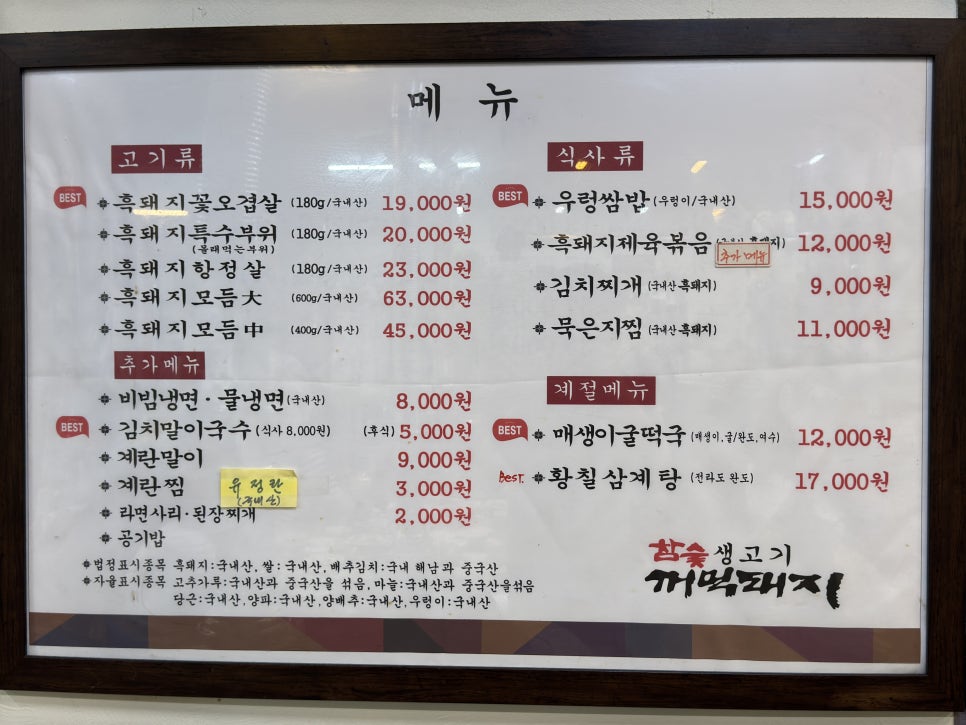 메 뉴
고기류
BEST 흑돼지꽃오겹살 (180g/국내산) 19,000원
흑돼지특수부위 (180g/국내산) 20,000원
(몰래먹는부위)
흑돼지항정살 (180g/국내산) 23,000원
흑돼지모듬大 (600g/국내산) 63,000원
흑돼지모듬中 (400g/국내산) 45,000원
추가메뉴
비빔냉면·물냉면(국내산) 8,000원
BEST 김치말이국수 (식사 8,000원) (후식) 5,000원
계란말이 9,000원
계란찜 3,000원
유정란
(국내산)
라면사리·된장찌개 2,000원
공기밥
법정표시종목 흑돼지:국내산, 쌀:국내산, 배추김치:국내 해남과 중국산
자율표시종목 고추가루:국내산과 중국산을 섞음, 마늘:국내산과 중국산을섞음
당근:국내산, 양파:국내산, 양배추:국내산, 우렁이:국내산
식사류
BEST 우렁쌈밥 (우렁이/국내산) 15,000원
흑돼지제육볶음 흑돼지) 12,000원
추가메뉴
김치찌개 (국내산흑돼지) 9,000원
묵은지찜 (국내산흑돼지) 11,000원
계절메뉴
BEST 매생이굴떡국 (매생이,굴/완도,여수) 12,000원
BEST. 황칠삼계탕 (전라도 완도) 17,000원
참숯생고기
꺼먹돼지